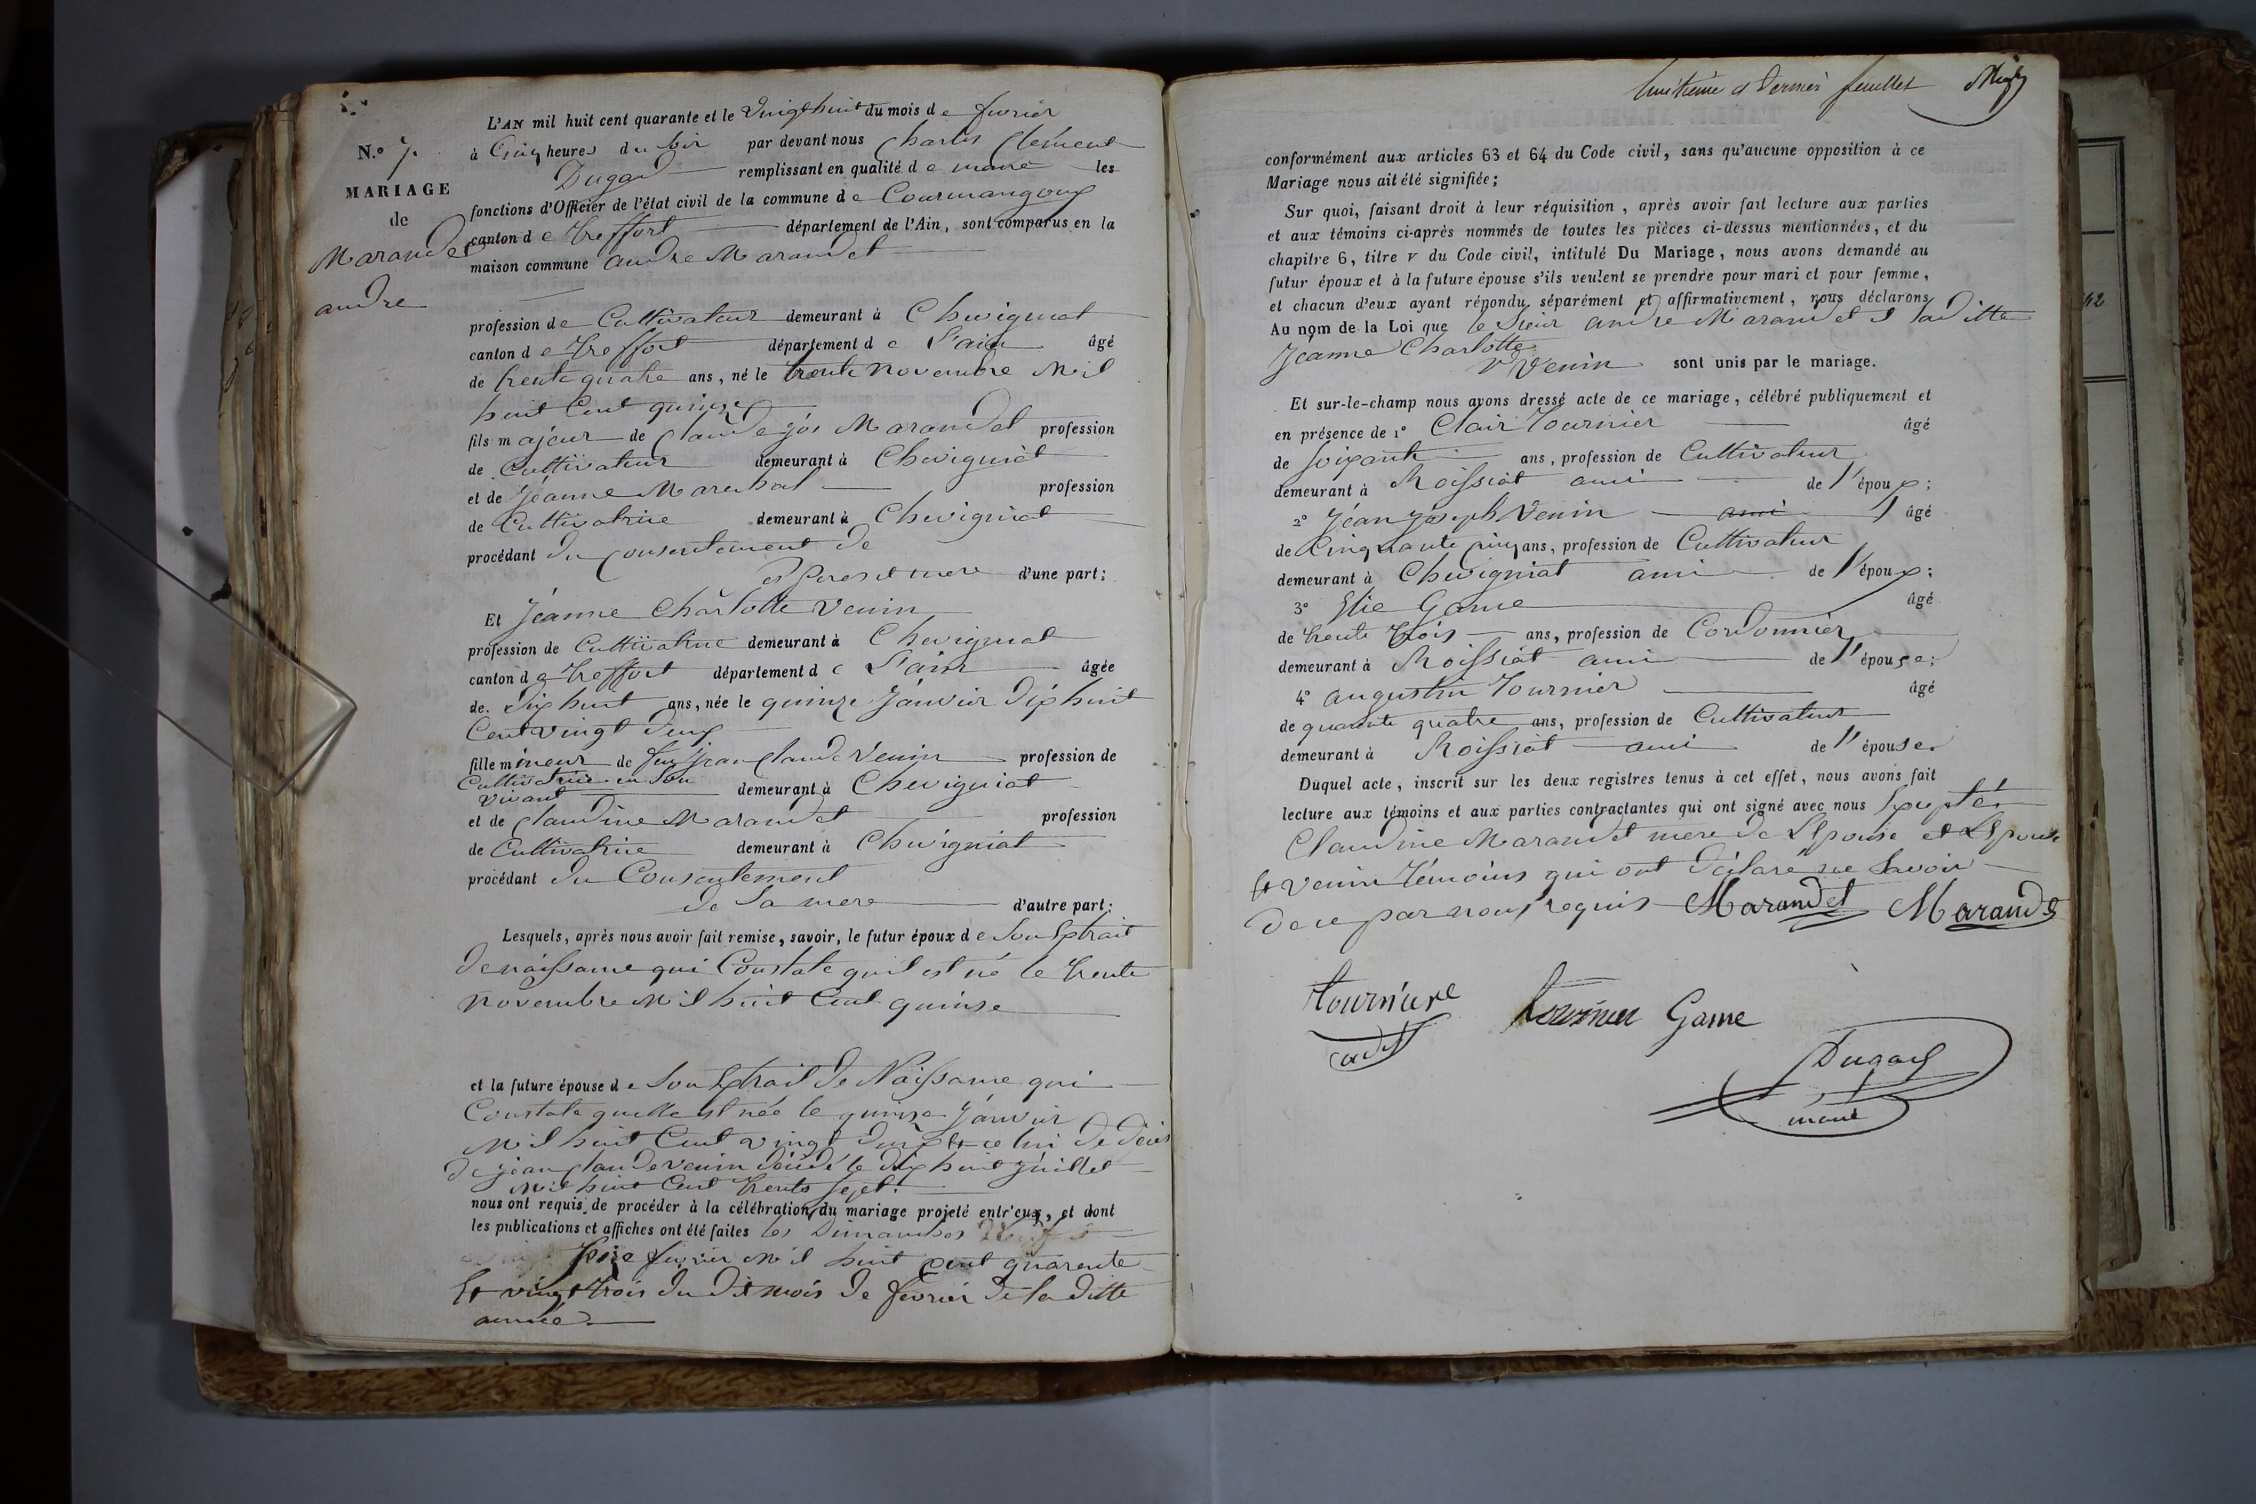 L'AN mil huit cent quarante et le vingt huit du mois de fevrier
N.° 7. à Cinq heures du soir par devant nous Charles Clément
MARIAGE Dugad remplissant en qualité de maire les
de fonctions d'Officier de l'état civil de la commune de Courmangoux
Marandet canton de treffort département de l'Ain, sont comparus en la
andre maison commune andre Marandet
profession de Cultivateur demeurant à Chevigniat
canton de treffort département de l'ain âgé
de trente quatre ans, né le trente Novembre Mil
huit Cent quinze
fils majeur de Claude jós Marandet profession
de Cultivateur demeurant à Chevigniat
et de Jéanne Marechal profession
de Cultivatrice demeurant à Chevigniat
procédant du Consentement de
ses peres et mere d'une part;
Et Jéanne Charlotte Venin
profession de Cultivatrice demeurant à Chevigniat
canton de treffort département de l'ain âgée
de dix huit ans, née le quinze Jánvier dix huit
Cent vingt deux
fille mineur de feu jean Claude Venin profession de
Cultivatrice en son
vivant demeurant à Chevigniat
et de Claudine Marandet profession
de Cultivatrice demeurant à Chevigniat
procédant du Consentement
de Sa mere d'autre part;
Lesquels, après nous avoir fait remise, savoir, le futur époux de Son Extrait
de naissance qui Constate qu'il est né le trente
Novembre Mil huit Cent quinse
et la future épouse de Son Extrait de Naissance qui
Constate quelle est née le quinze Jánvier
Mil huit Cent vingt deux et celui de décés
de jéan Claude venin décédé le dix huit juillet
Mil huit Cent trente sept.
nous ont requis de procéder à la célébration du mariage projeté entr'eux, et dont
les publications et affiches ont été faites les Dimanches
fevrier Mil huit Cent quarente
Et vingt trois du dit mois de fevrier de la ditte
année
huitieme et dernier feuillet
conformément aux articles 63 et 64 du Code civil, sans qu'aucune opposition à ce
Mariage nous ait été signifiée;
Sur quoi, faisant droit à leur réquisition, après avoir fait lecture aux parties
et aux témoins ci-après nommés de toutes les pièces ci-dessus mentionnées, et du
chapitre 6, titre V du Code civil, intitulé Du Mariage, nous avons demandé au
futur époux et à la future épouse s'ils veulent se prendre pour mari et pour femme,
et chacun d'eux ayant répondu séparément et affirmativement, nous déclarons
Au nom de la Loi que le Sieur andre Marandet et laditte
Jéanne Charlotte
Venin sont unis par le mariage.
Et sur-le-champ nous avons dressé acte de ce mariage, célébré publiquement et
en présence de 1° Clair Tournier âgé
de soixante ans, profession de Cultivateur
demeurant à Roissiat ami de l'époux;
2° Jéan Joseph Venin ami âgé
de Cinquante cinq ans, profession de Cultivateur
demeurant à Chevigniat ami de l'époux;
3° Elie Game âgé
de trente trois ans, profession de Cordonnier
demeurant à Roissiat ami de l'épouse;
4° augustin Tournier âgé
de quarante quatre ans, profession de Cultivateur
demeurant à Roissiat ami de l'épouse.
Duquel acte, inscrit sur les deux registres tenus à cet effet, nous avons fait
lecture aux témoins et aux parties contractantes qui ont signé avec nous Exceptés
Claudine Marandet mere de L'Epouse et L'Epouse
Et venin témoins qui ont déclaré ne Savoir
de ce par nous requis Marandet Marandet
tournier tournier Game
cadet
Dugad
maire